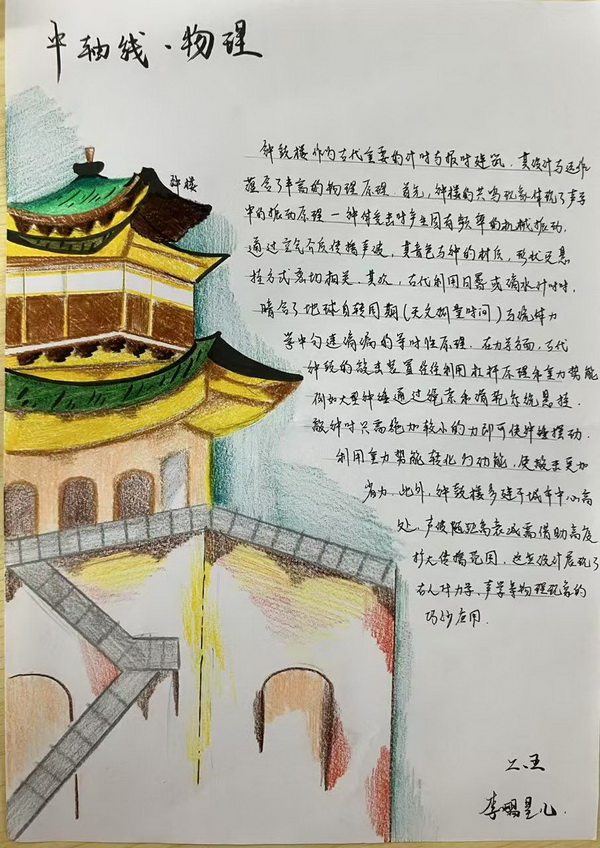 中轴线·物理
钟楼
钟鼓楼作为古代重要的计时与报时建筑，其设计与运作
蕴含了丰富的物理原理。首先，钟楼的共鸣现象体现了声学
中的振动原理——钟体受击时产生固有频率的机械振动，
通过空气介质传播声波，其音色与钟的材质，形状及悬
挂方式密切相关，其次，古代利用日晷或滴水计时时，
暗合了地球自转周期（天文测量时间）与流体力
学中匀速滴漏的等时性原理。在力学方面，古代
钟鼓的敲击装置往往利用杠杆原理和重力势能
例如大型钟锤通过绳索和滑轮系统悬挂，
敲钟时只需施加较小的力即可使钟锤摆动，
利用重力势能转化为动能，使敲击更加
省力。此外，钟鼓楼多建于城市中心高
处，声波随距离衰减需借助高度
扩大传播范围，这些设计展现了
古人对力学、声学等物理现象的
巧妙应用。
二、五
李鹏